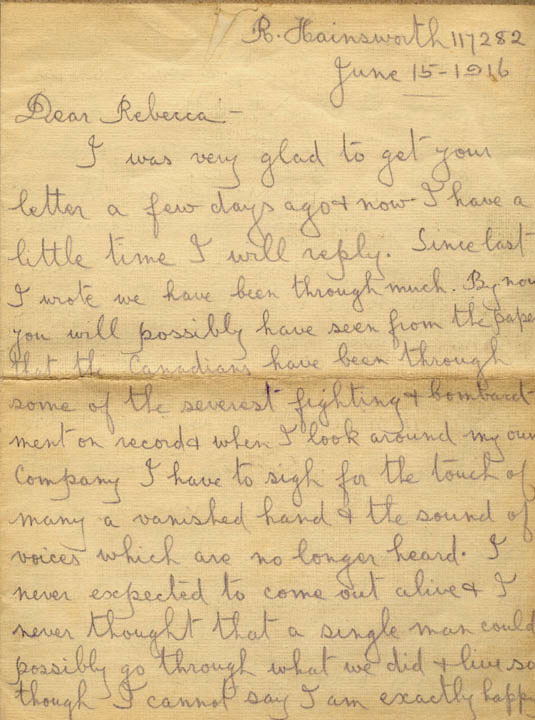 R. Hainsworth 117282
June 15-1916
Dear Rebecca:-
I was very glad to get your
letter a few days ago & now I have a
little time I will reply. Since last
I wrote we have been through much. By now
you will possibly have seen from the pape
that the Canadians have been through
some of the severest fighting & bombard-
ment on record & when I look around my own
Company I have to sigh for the touch of
many a vanished hand & the sound of
voices which are no longer heard. I
never expected to come out alive & I
never thought that a single man could
possibly go through what we did & live so
though I cannot say I am exactly happy